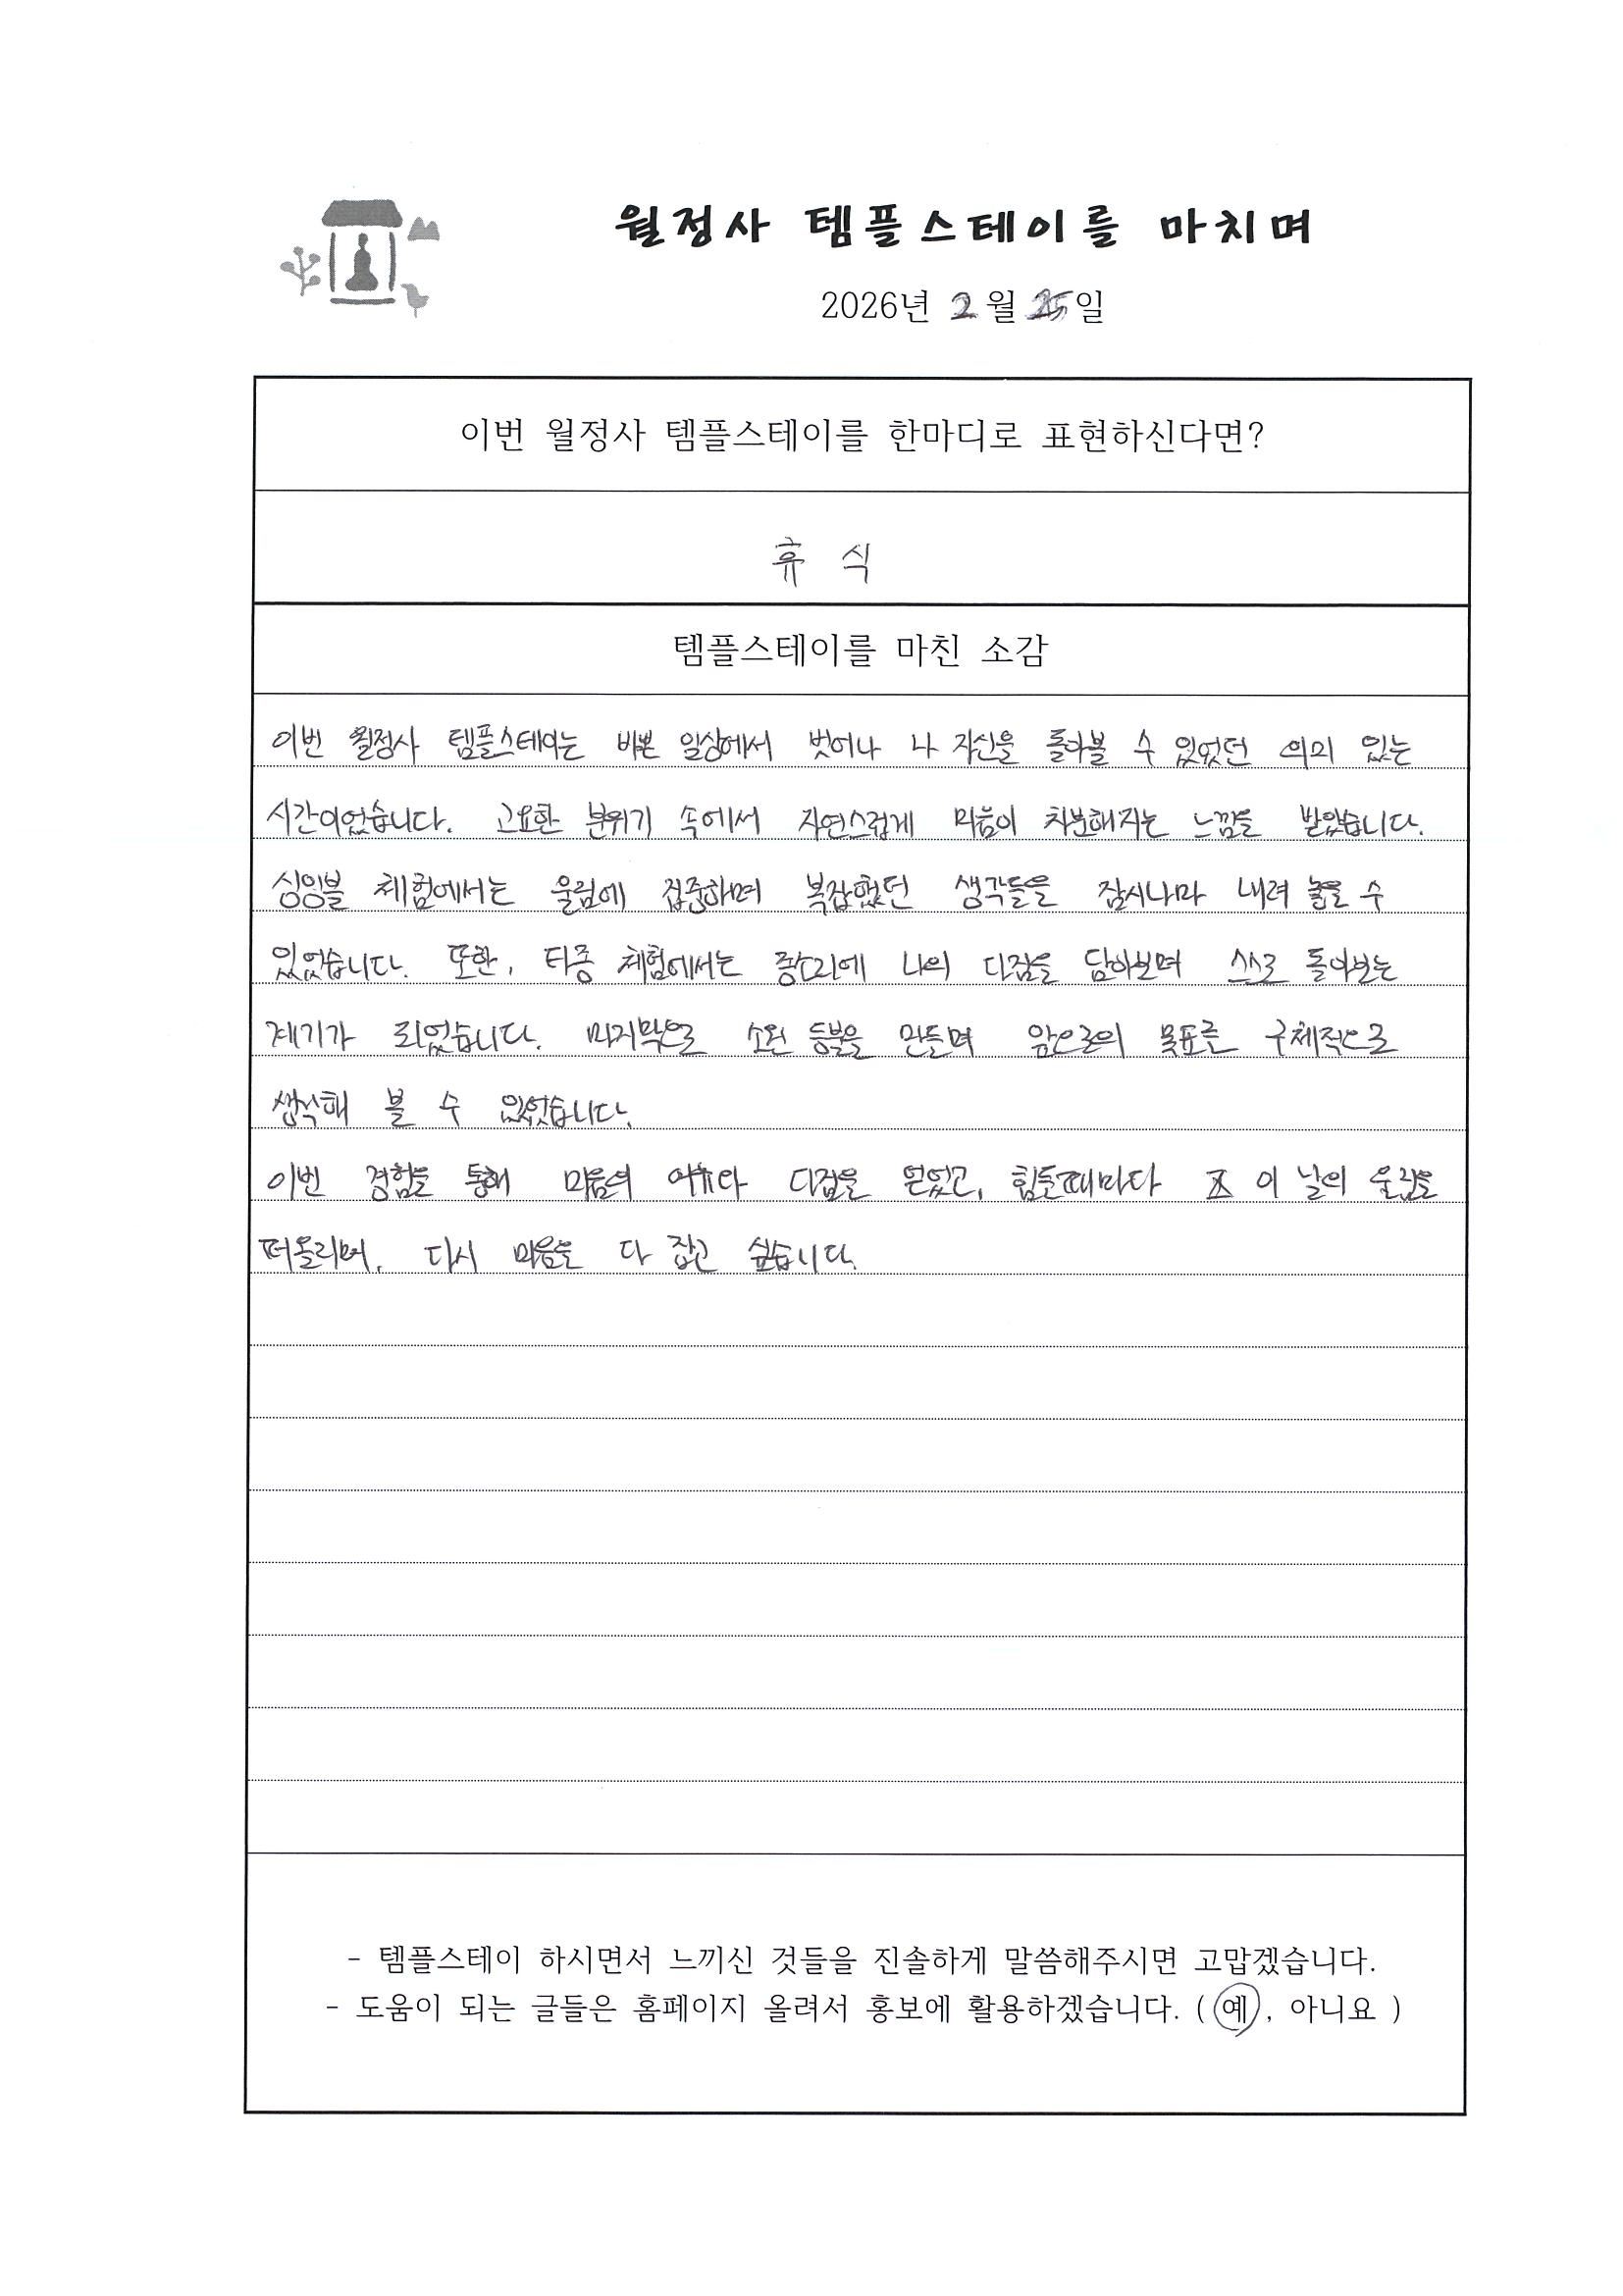 월정사 템플스테이를 마치며
2026년 2월 25일
이번 월정사 템플스테이를 한마디로 표현하신다면?
휴 식
템플스테이를 마친 소감
이번 월정사 템플스테이는 바쁜 일상에서 벗어나 나 자신을 돌아볼 수 있었던 의미 있는
시간이었습니다. 고요한 분위기 속에서 자연스럽게 마음이 차분해지는 느낌을 받았습니다.
싱잉볼 체험에서는 울림에 집중하며 복잡했던 생각들을 잠시나마 내려 놓을 수
있었습니다. 또한, 타종 체험에서는 종소리에 나의 다짐을 담아보며 스스로 돌아보는
계기가 되었습니다. 마지막으로 소원 등불을 만들며 앞으로의 목표를 구체적으로
생각해 볼 수 있었습니다.
이번 경험을 통해 마음의 여유와 다짐을 얻었고, 힘들때마다 이 날의 울림을
떠올리며, 다시 마음을 다 잡고 싶습니다.
- 템플스테이 하시면서 느끼신 것들을 진솔하게 말씀해주시면 고맙겠습니다.
- 도움이 되는 글들은 홈페이지 올려서 홍보에 활용하겠습니다. ( 예 , 아니요 )